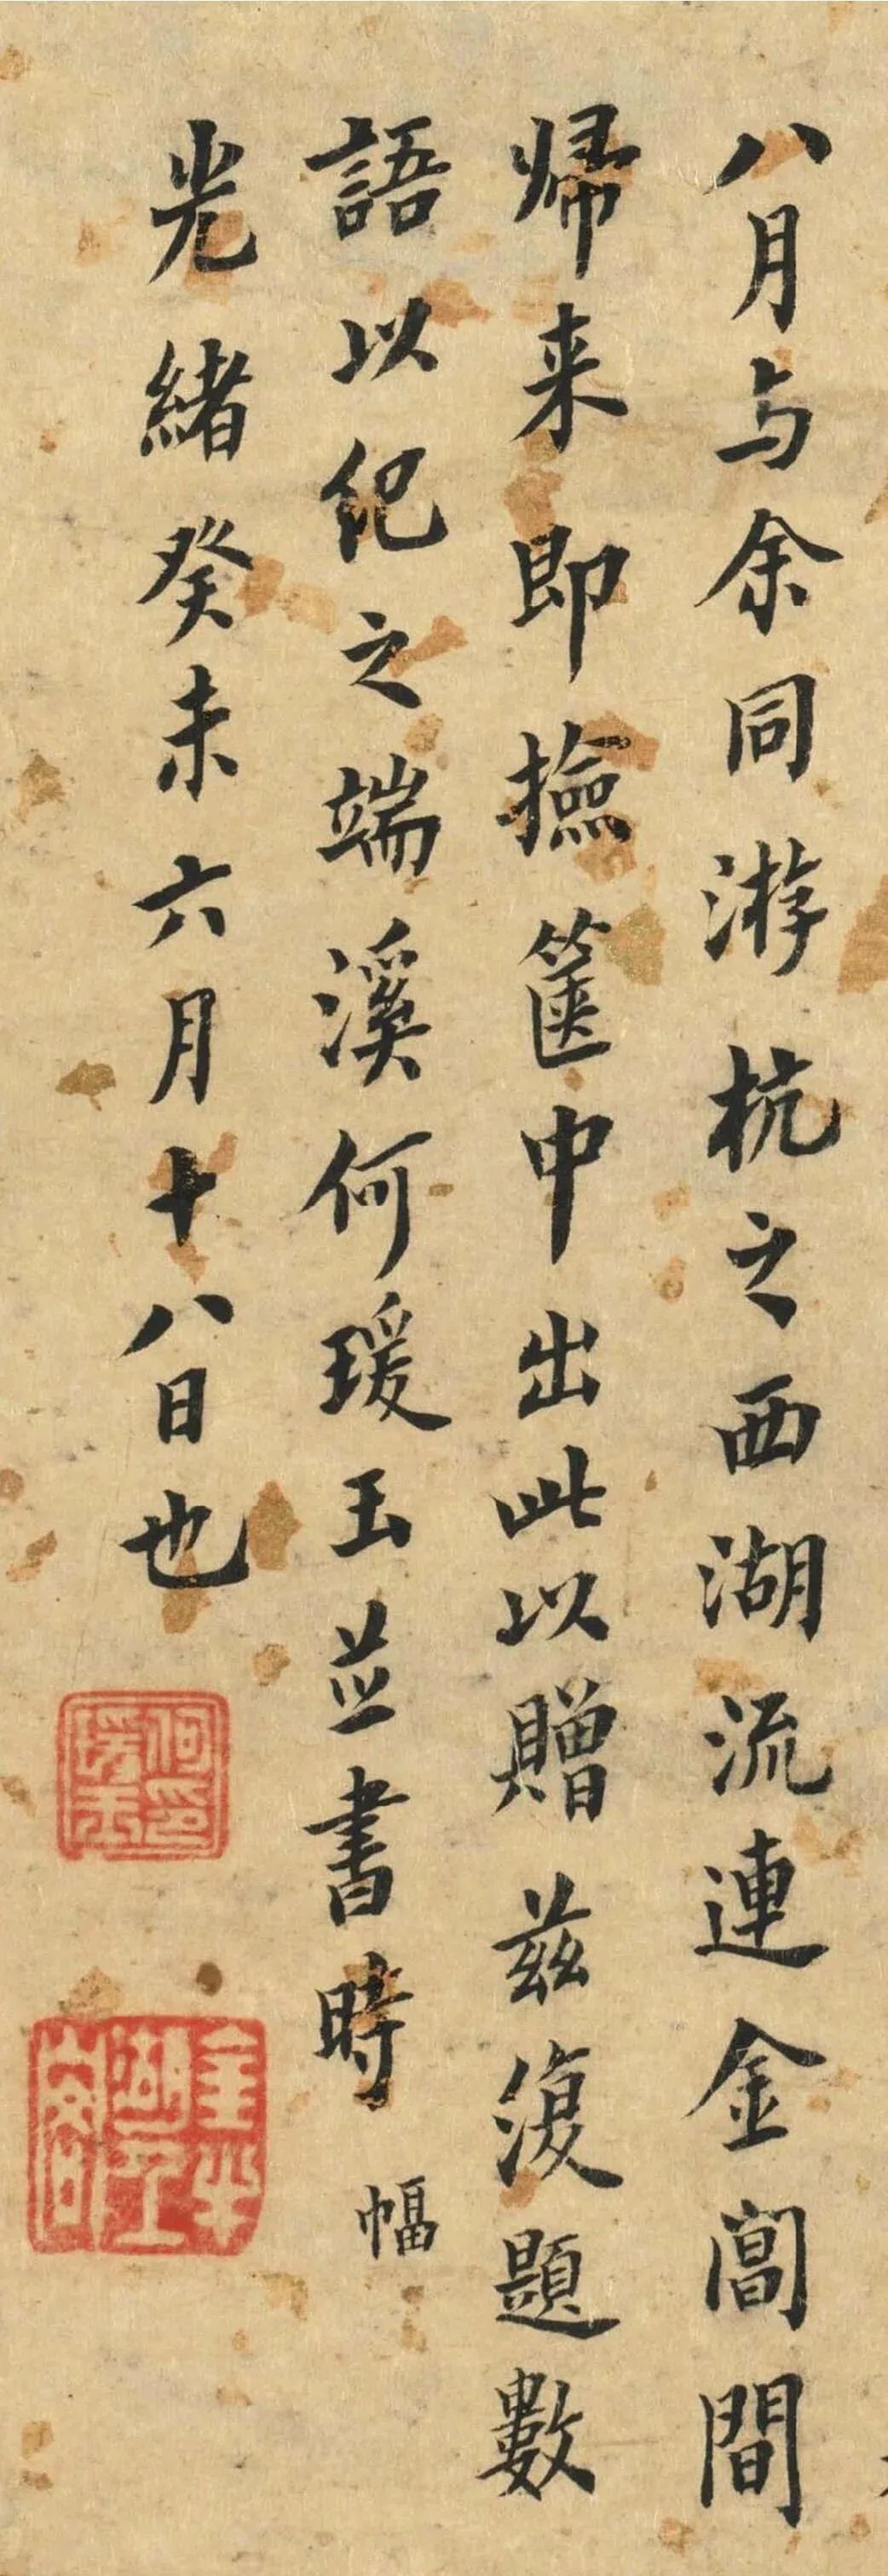 八月与余同游杭之西湖流連金閶間
帰来即撿篋中出此以贈茲復題數
語以紀之端溪何瑗玉並書時幅
光緒癸未六月十八日也
何印瑗玉